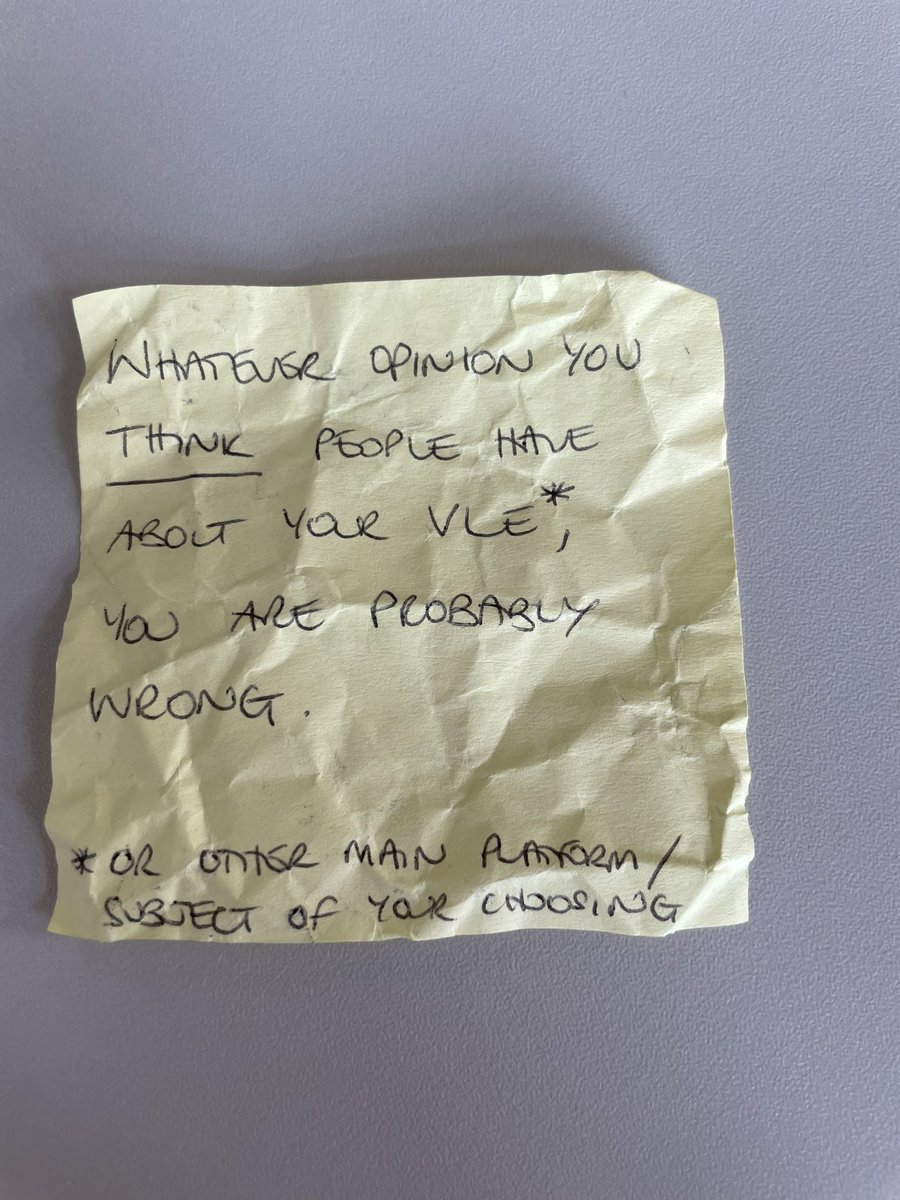 WHATEVER OPINION YOU
THINK PEOPLE HAVE
ABOUT YOUR VLE*,
YOU ARE PROBABLY
WRONG.
* OR OTHER MAIN PLATFORM /
SUBJECT OF YOUR CHOOSING